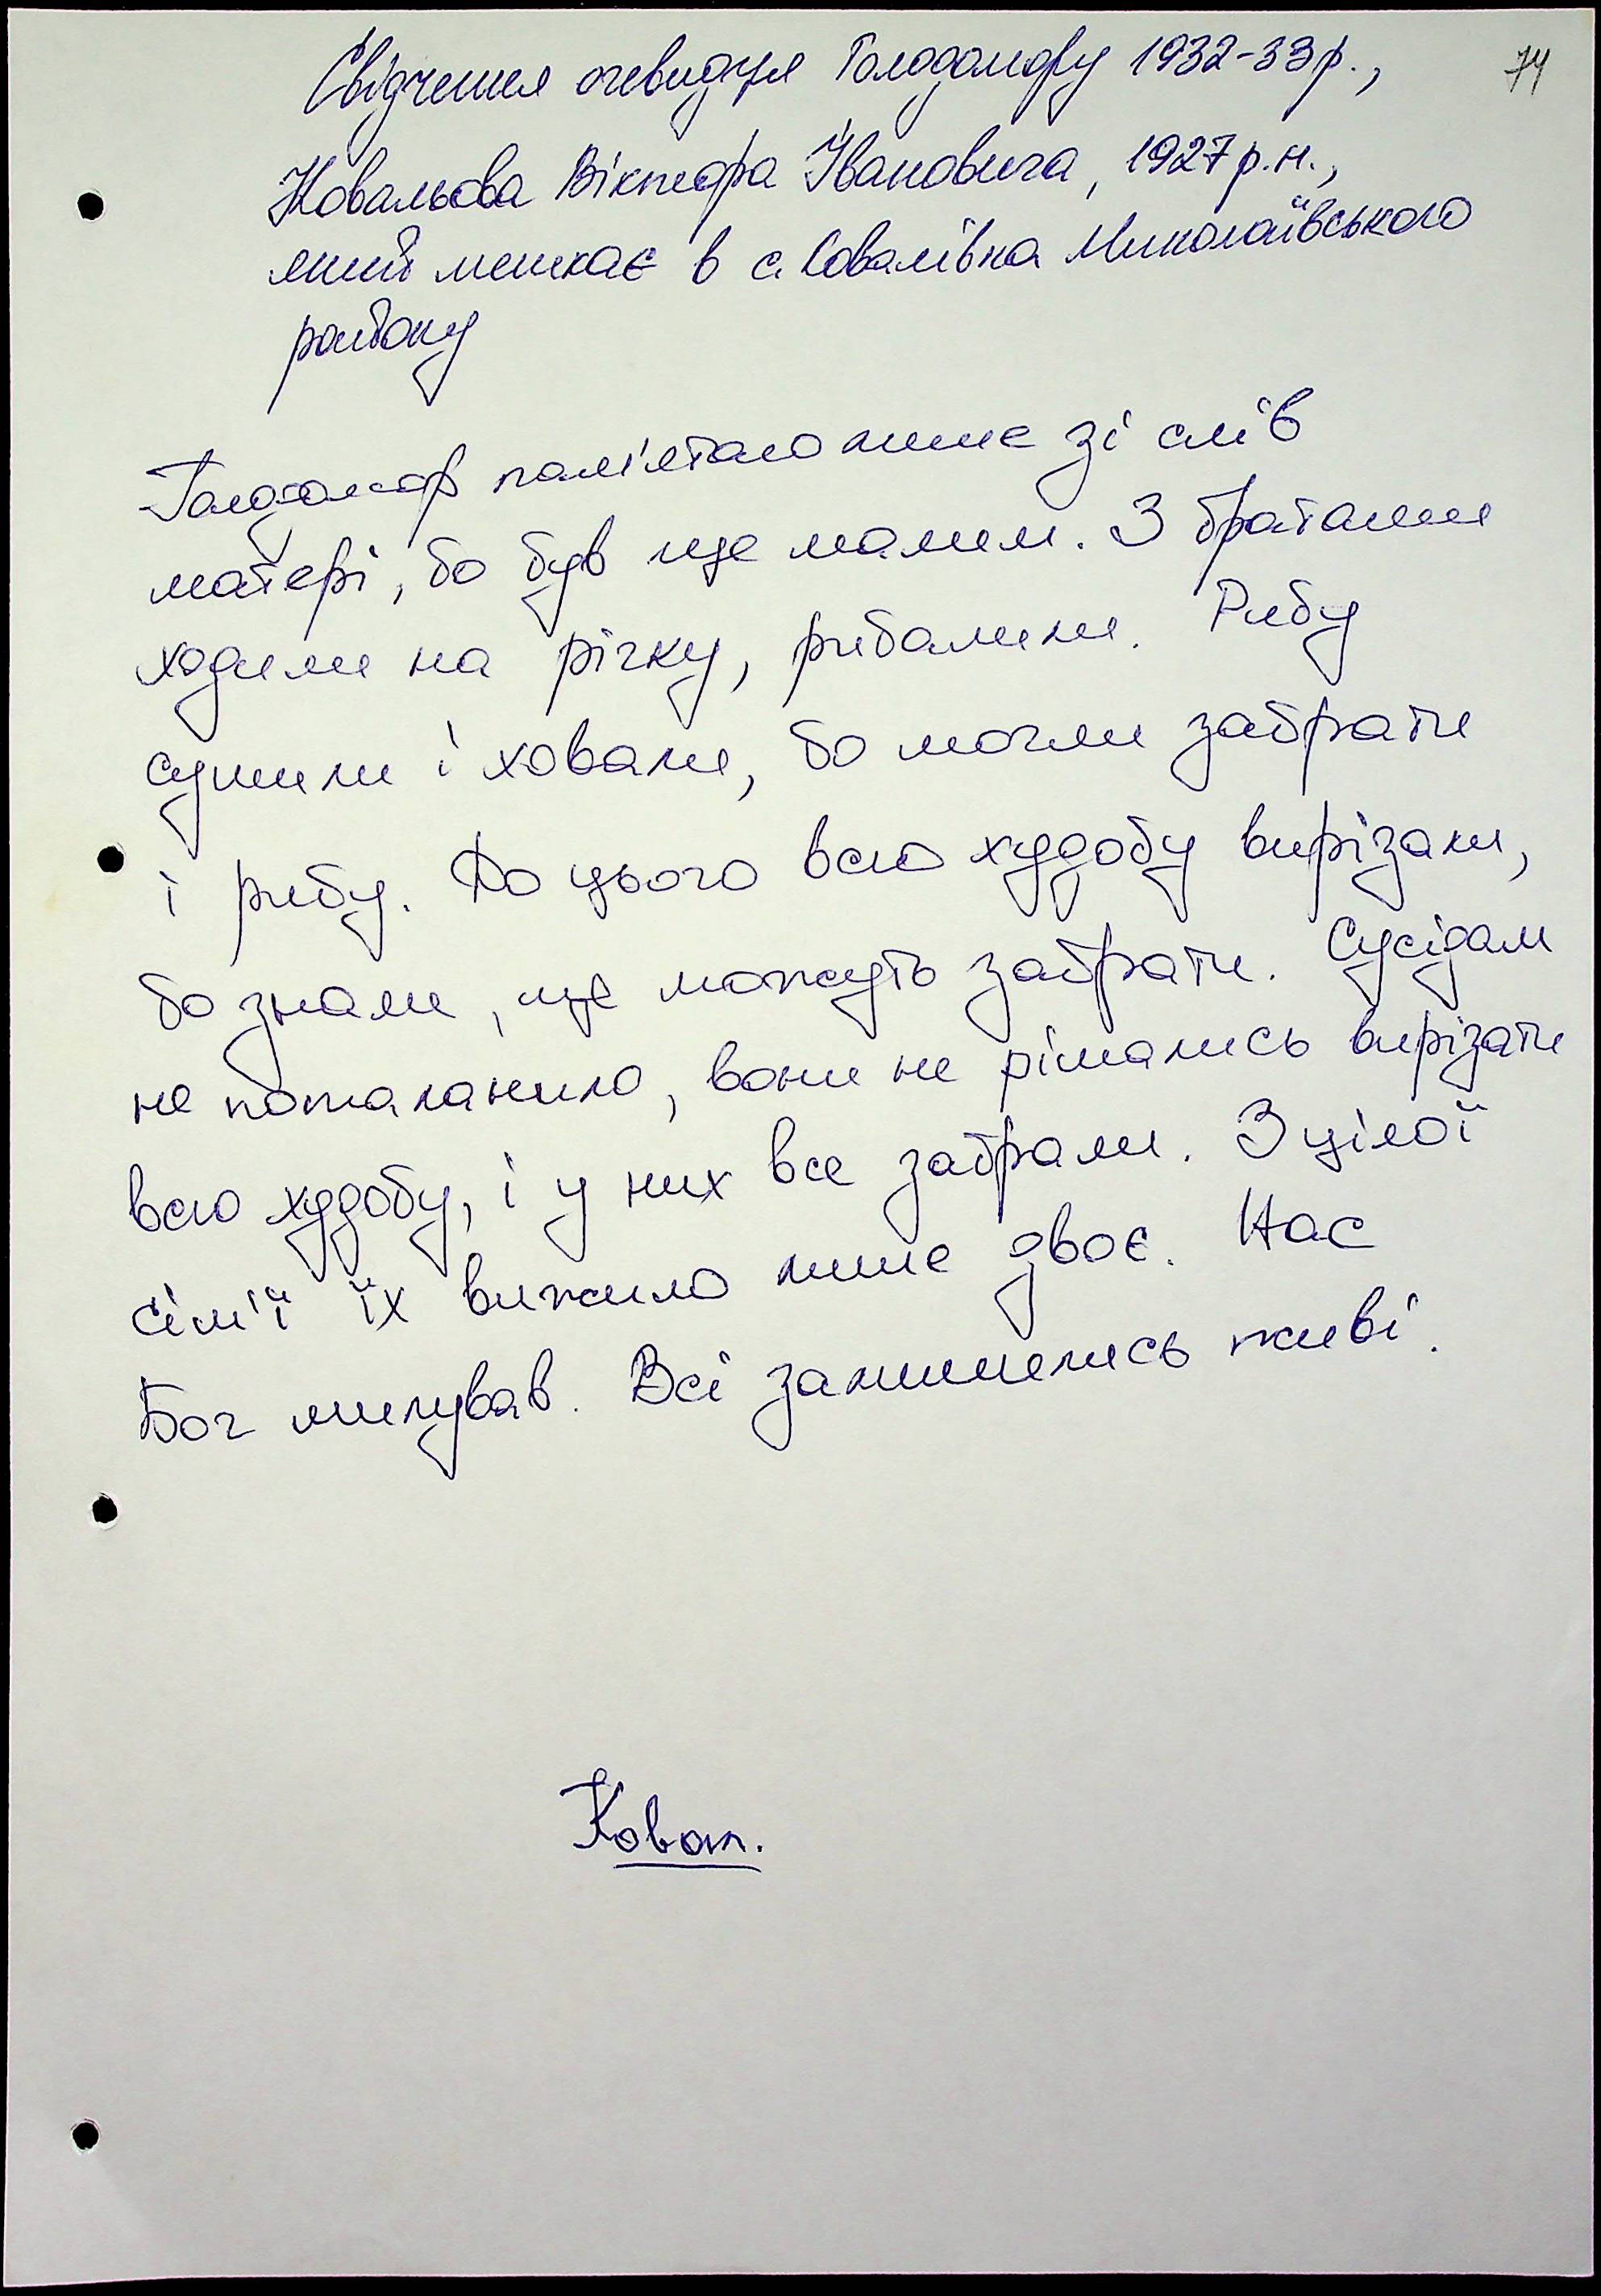 Свідчення очевидця Голодомору 1932-33р.,
74
Ковальова Віктора Івановича, 1927р.н.,
який мешкає в с. Ковалівка Миколаївського
району
Голодомор пам'ятаю лише зі слів
матері, бо був ще малим. З братами
ходили на річку, рибалили. Рибу
сушили і ховали, бо могли забрати
і рибу. До цього всю худобу вирізали,
бо знали, що можуть забрати. Сусідам
не поталанило, вони не рішались вирізати
всю худобу, і у них все забрали. З цілої
сім'ї їх вижило лише двоє. Нас
Бог милував. Всі залишились живі.
Ковал.